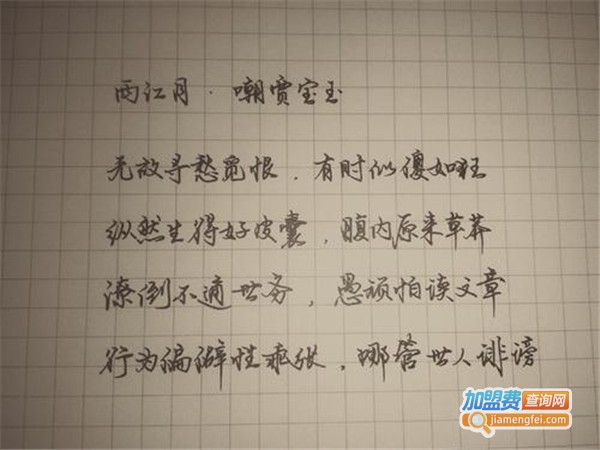 西江月·嘲贾宝玉
无故寻愁觅恨，有时似傻如狂
纵然生得好皮囊，腹内原来草莽
潦倒不通世务，愚顽怕读文章
行为偏僻性乖张，哪管世人诽谤
加盟费查询网
jiamengfei.com